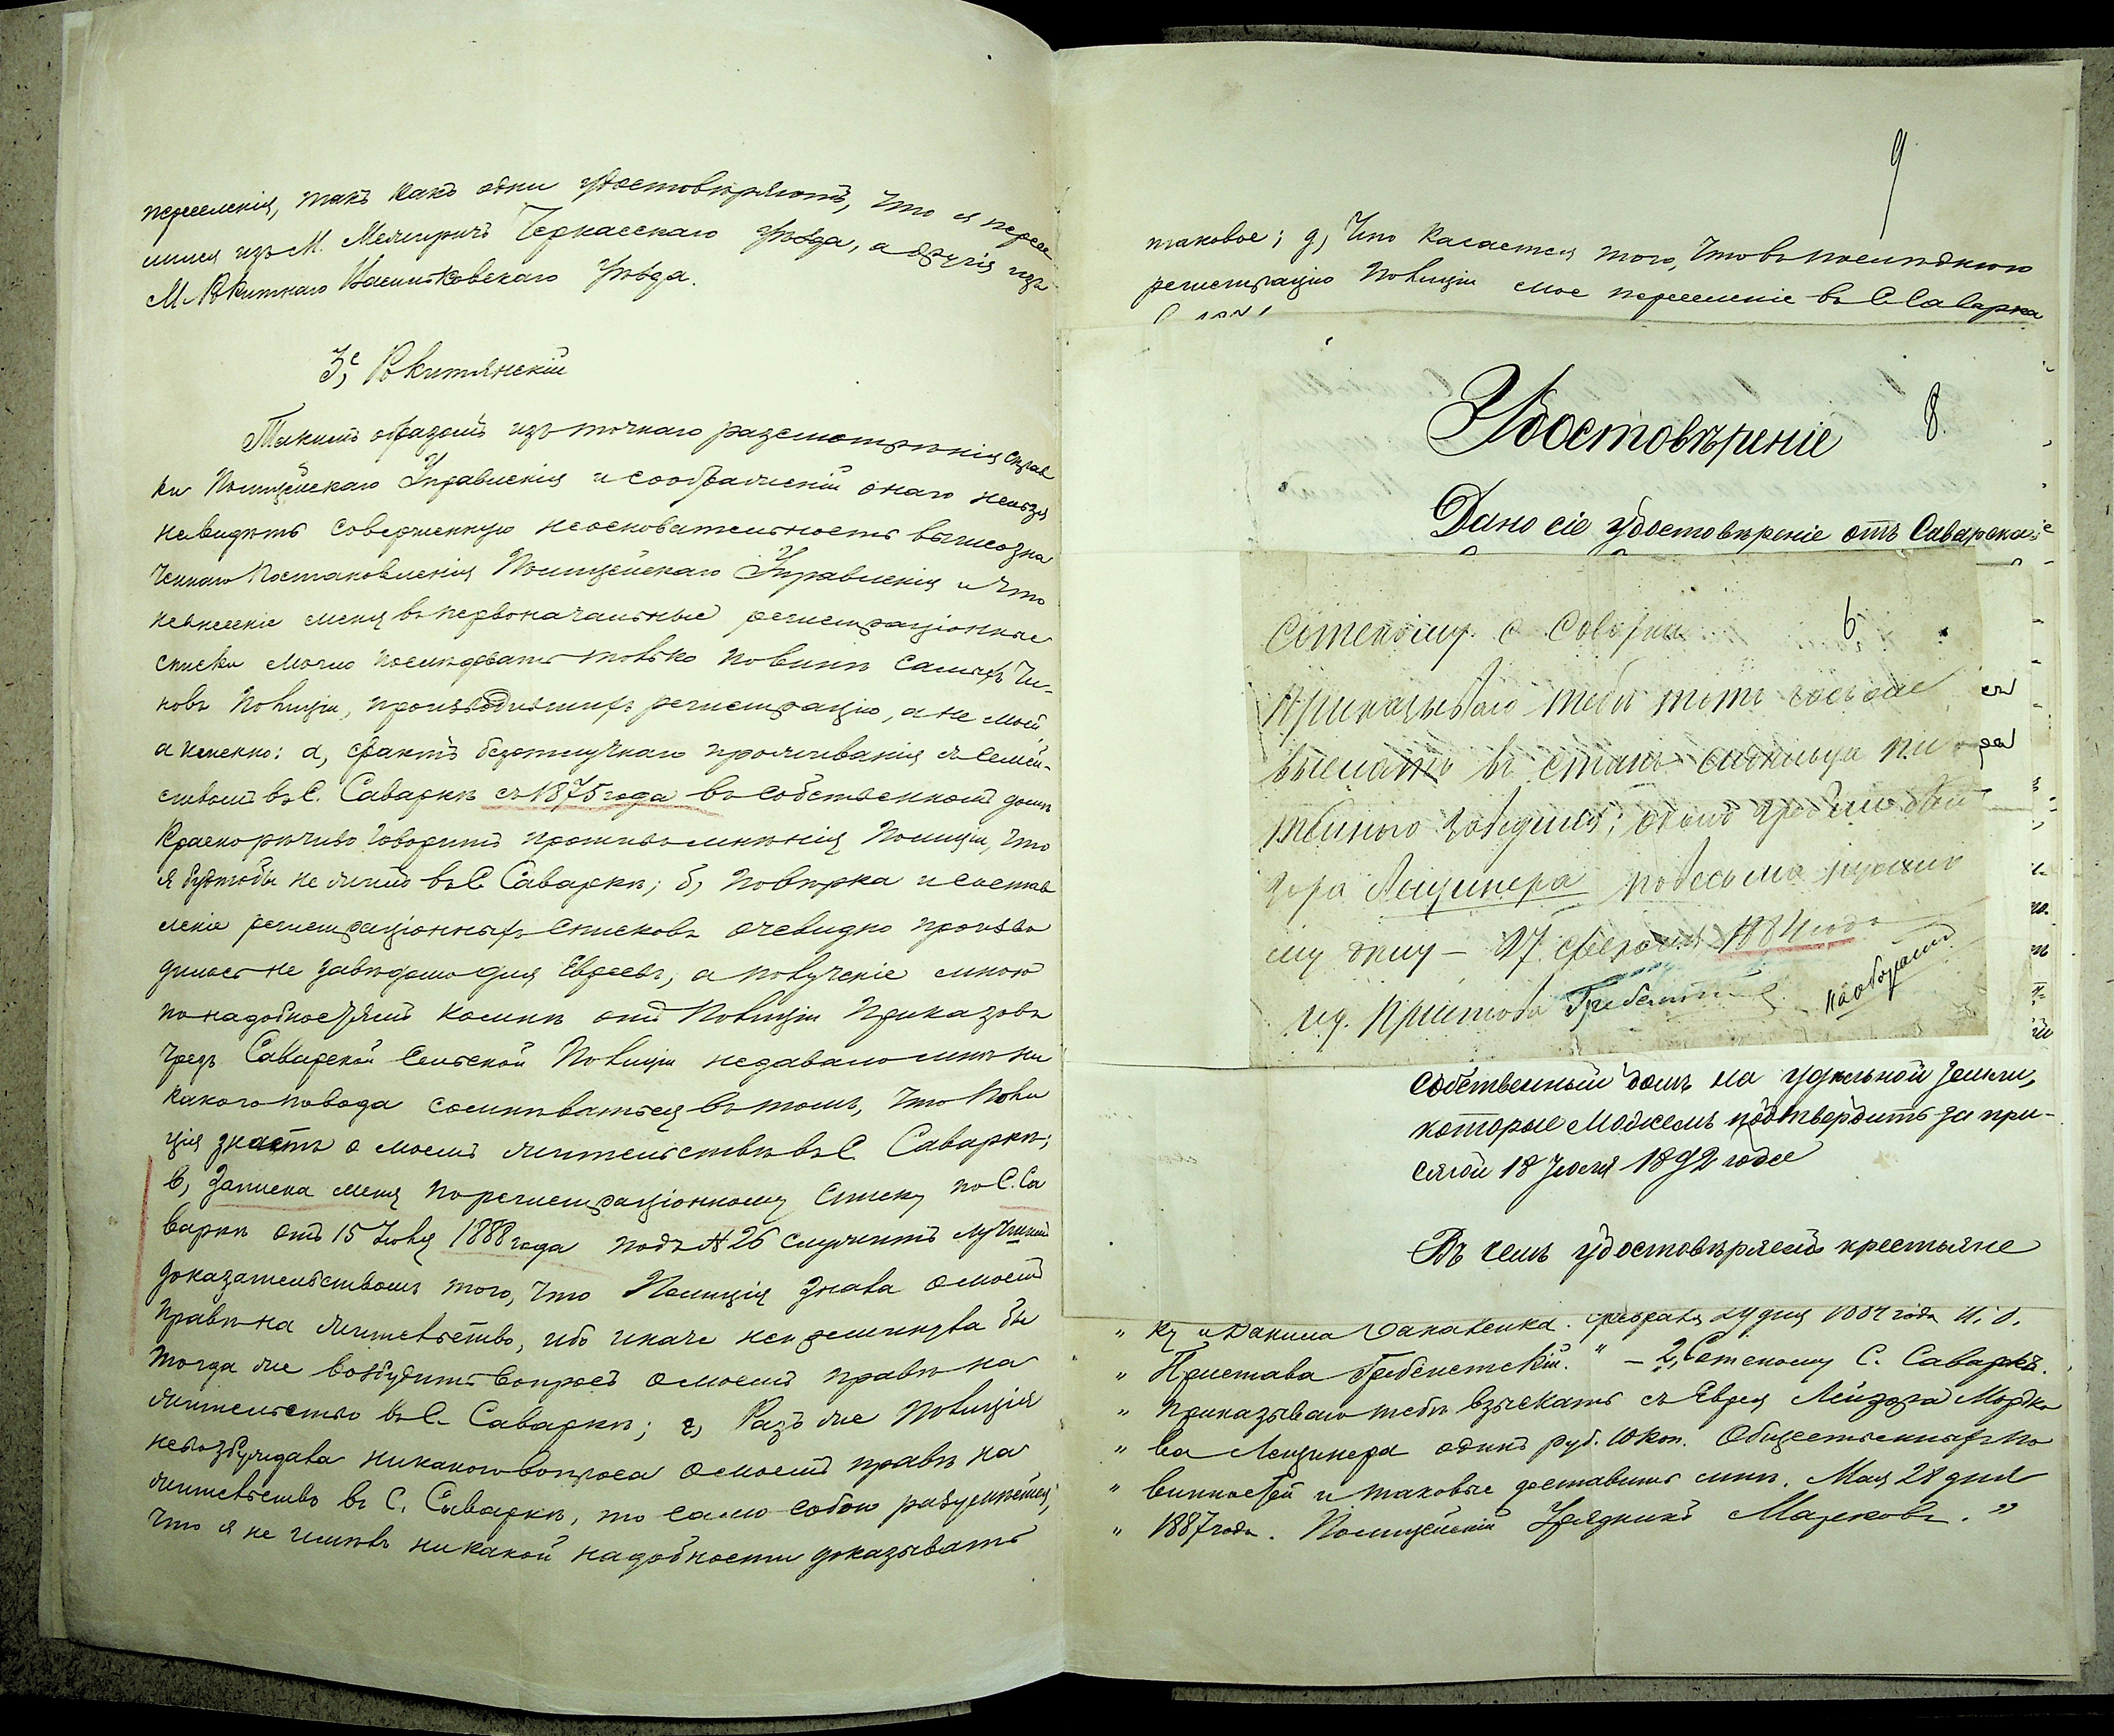 переселенія, такъ какъ одни удостовѣряютъ, что я пересе
лился изъ М. Межиричъ Черкасскаго уѣзда, а другія изъ
М. Рокитнаго Васильковскаго уѣзда.
3е, Рокитянскій
Такимъ образомъ изъ точнаго разсмотрѣнія справ
ки Полицейскаго Управленія и соображеній онаго нельзя
невидѣть совершенную неосновательность вышеозна
ченнаго постановленія Полицейскаго Управленія и что
невнесеніе меня въ первоначальные регистраціонные
списки могло послѣдовать только по винѣ самыхъ Чи-
новъ Полиціи, производившихъ регистрацію, а не моей,
а именно: а, фактъ безотлучнаго проживанія съ семей-
ствомъ въ С. Саваркѣ съ 1875 года въ собственномъ домѣ
краснорѣчиво говоритъ противъ мнѣнія Полиціи, что
я будтобы не жилъ въ С. Саваркѣ; б, повѣрка и состав
леніе регистраціонныхъ списковъ очевидно произво
дилось не завѣдомо для Евреевъ, а полученіе мною
по надобностямъ коимъ отъ Полиціи Приказовъ
чрезъ Саварской Сельской Полиціи недавало мнѣ ни
какого повода сомнѣваться въ томъ, что Поли
ція знаетъ о моемъ жительствѣ въ С. Саваркѣ;
в, Записка меня по регистраціонному списку по С. Са
варкѣ отъ 15 Іюля 1888 года подъ № 26 служитъ лучшимъ
доказательствомъ того, что Полиція знала о моемъ
правѣ на жительство, ибо иначе непреминула бы
тогда же возбудить вопросъ о моемъ правѣ на
жительство въ С. Саваркѣ; г, Разъ же Полиція
невозбуждала никакого вопроса о моемъ правѣ на
жительство въ С. Саваркѣ, то само собою разумѣется,
что я не имѣлъ никакой надобности доказывать
9
таковое; д, Что касается того, что въ послѣднюю
регистрацію Полиціи мое переселеніе въ С. Саварка
Удостовѣреніе
8.
Дано сіе удостовѣреніе отъ Саварска
Сотскому с Соварки
6
Приказываю тебѣ тотъ часъ же
выслать въ станъ
гора Лещинера
27 февраля 1884 года
и д. Пристава Гребенетскій
наоборотъ
собственный домъ на удѣльной земли,
которые можемъ подтвердить за при-
сягой 18 Іюля 1892 года
Въ чемъ удостовѣряемъ крестьяне
" ку и Данила февраля 27 дня 1884 года И. д.
" Пристава Гребенетскій. " – 2, Сотскому С. Саварки.
" приказываю тебѣ взыскать съ Еврея Лейзора Мордко
" ва Лещинера одинъ руб. 10 коп. Общественныхъ по
" винностей и таковые доставить мнѣ. Мая 28 дня
" 1887 года. Полицейскій Урядникъ Марковъ. "